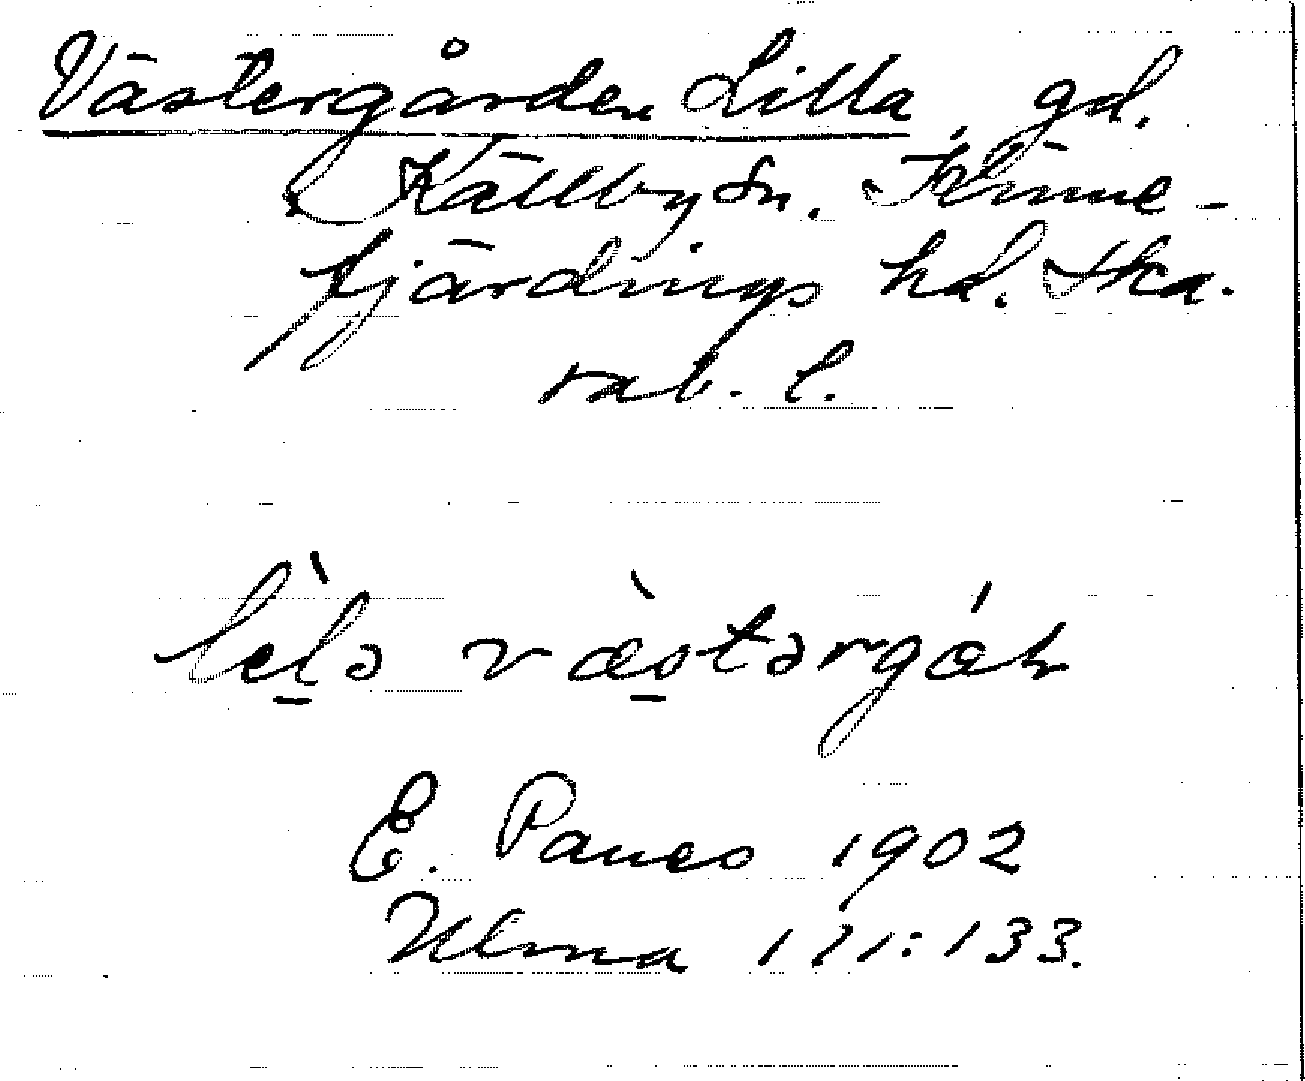 Västergården Lilla, gd.
Källby sn. Kinne-
fjärdings hd. Ska-
rab. l.
lèḻə væ̀s̱tərgáɽ
E. Paues 1902
Ulma 171:133.